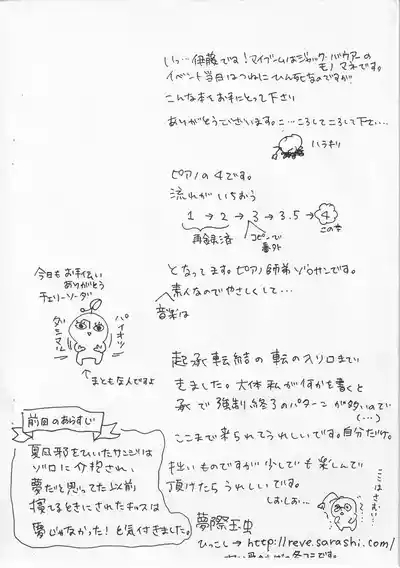 いっ…伊藤です!マイブームはジャック・バウアーの
モノマネです。
イベント当日はつねにひん死なのですが
こんな本もお手にとって下さり
ありがとうございます。こ…ころして ころして下…
ハラキリ
ピアノの4です。
流れがいちおう
1→2→3→3.5→4
再録済
コピーで
番外
この本
となってます。ピアノ師弟ゾロサンです。
素人なのでやさしくして…
音楽は
今日もお手伝い
ありがとう
チェリーソーダ
パイオツ
ダニマル
↑まともな人ですよ
起承転結の転の入り口まで
きました。大体私が何かを書くと
承で強制終了のパターンが多いので
(…)
ここまで来られてうれしいです。自分だけ。
拙いものですが少しでも楽しんで
頂けたらうれしいです。
しおしお…
ここはさむい…
前回のあらすじ
夏風邪をひいたサンジは
ゾロに介抱され、
夢だと思ってた以前
寝てるときにされたキスは
夢じゃなかった!と気付きました。
夢際玉虫
ひっこし→http://reve.sarashi.com/